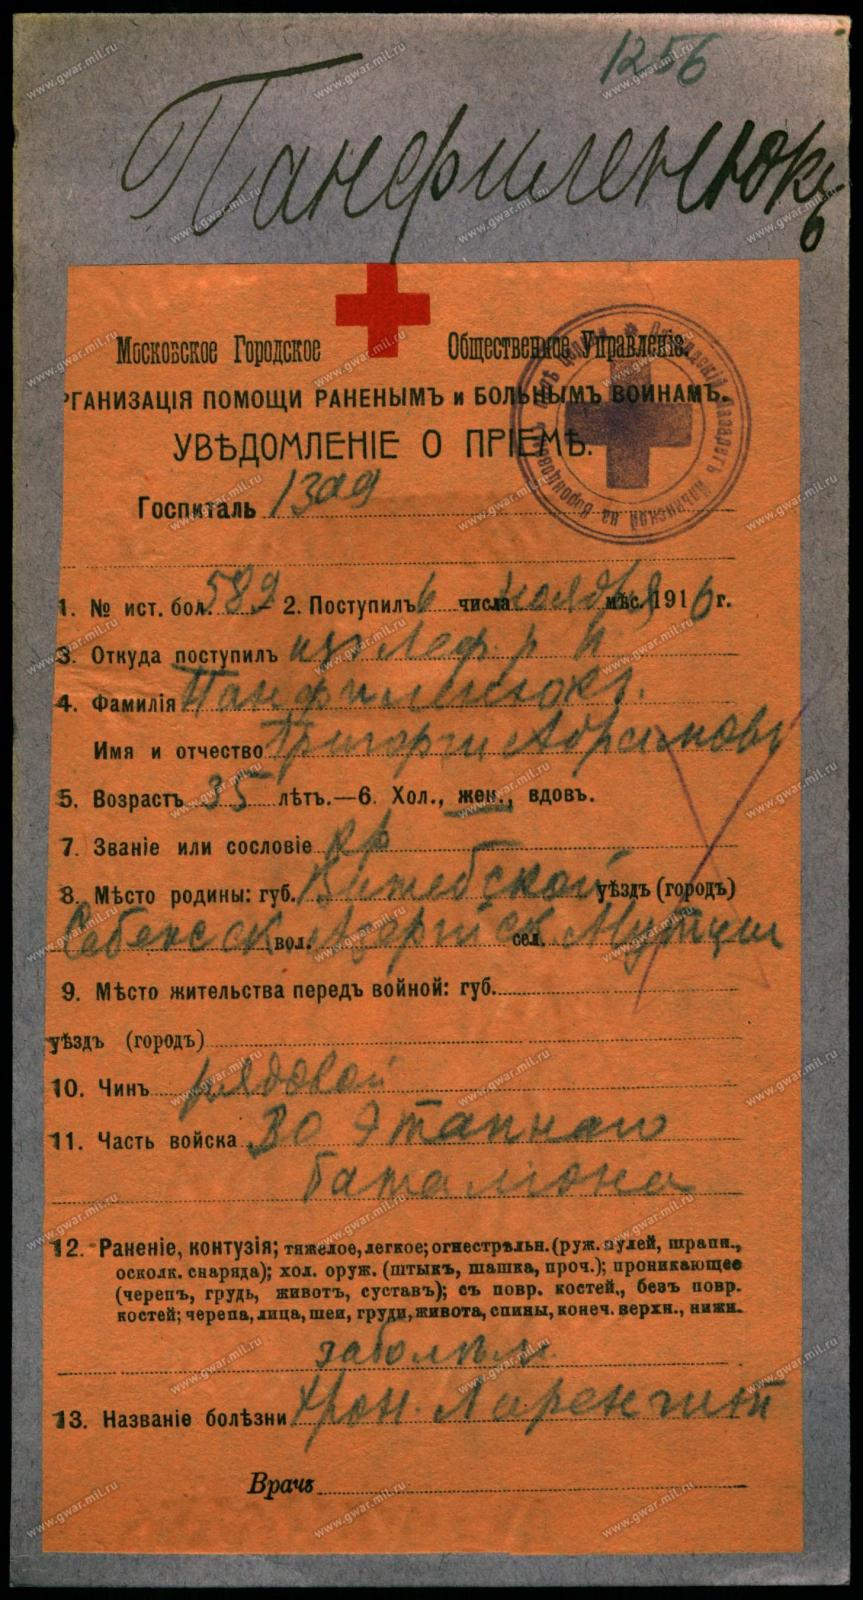 1256
Панфиленюкъ
Московское Городское Общественное Управленіе.
РГАНИЗАЦІЯ ПОМОЩИ РАНЕНЫМЪ и БОЛЬНЫМЪ ВОИНАМЪ.
УВѢДОМЛЕНІЕ О ПРІЕМѢ.
Госпиталь 1309
1. № ист. бол. 589 2. Поступилъ 6 числа ноября мѣс. 1916 г.
3. Откуда поступилъ из Леф. р п
4. Фамилія Панфиленюкъ.
Имя и отчество Григорги Абрамовъ
5. Возрастъ 35 лѣтъ.—6. Хол., жен., вдовъ.
7. Званіе или сословіе кр
8. Мѣсто родины: губ. Витебской уѣздъ (городъ)
Себежск вол. сел.
9. Мѣсто жительства передъ войной: губ.
уѣздъ (городъ)
10. Чинъ рядовой
11. Часть войска 30 Этапнаго
баталіона
12. Раненіе, контузія; тяжелое, легкое; огнестрѣльн. (руж. пулей, шрапн.,
осколк. снаряда); хол. оруж. (штыкъ, шашка, проч.); проникающее
(черепъ, грудь, животъ, суставъ); съ повр. костей., безъ повр.
костей; черепа, лица, шеи, груди, живота, спины, конеч. верхн., нижн.
заболѣл
13. Названіе болѣзни Хрон. Ларенгит
Врачъ